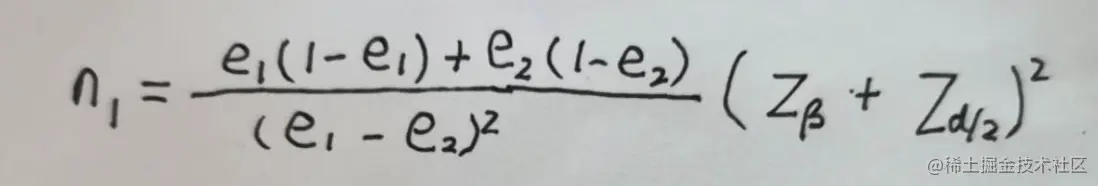 n₁ = e₁(1-e₁)+e₂(1-e₂) / (e₁-e₂)² (Z_β + Z_α/2)²
@稀土掘金技术社区